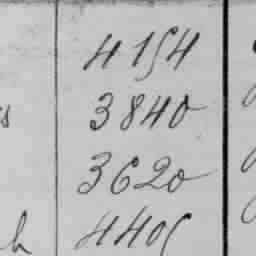 4154
3840
s 3620
h 4405